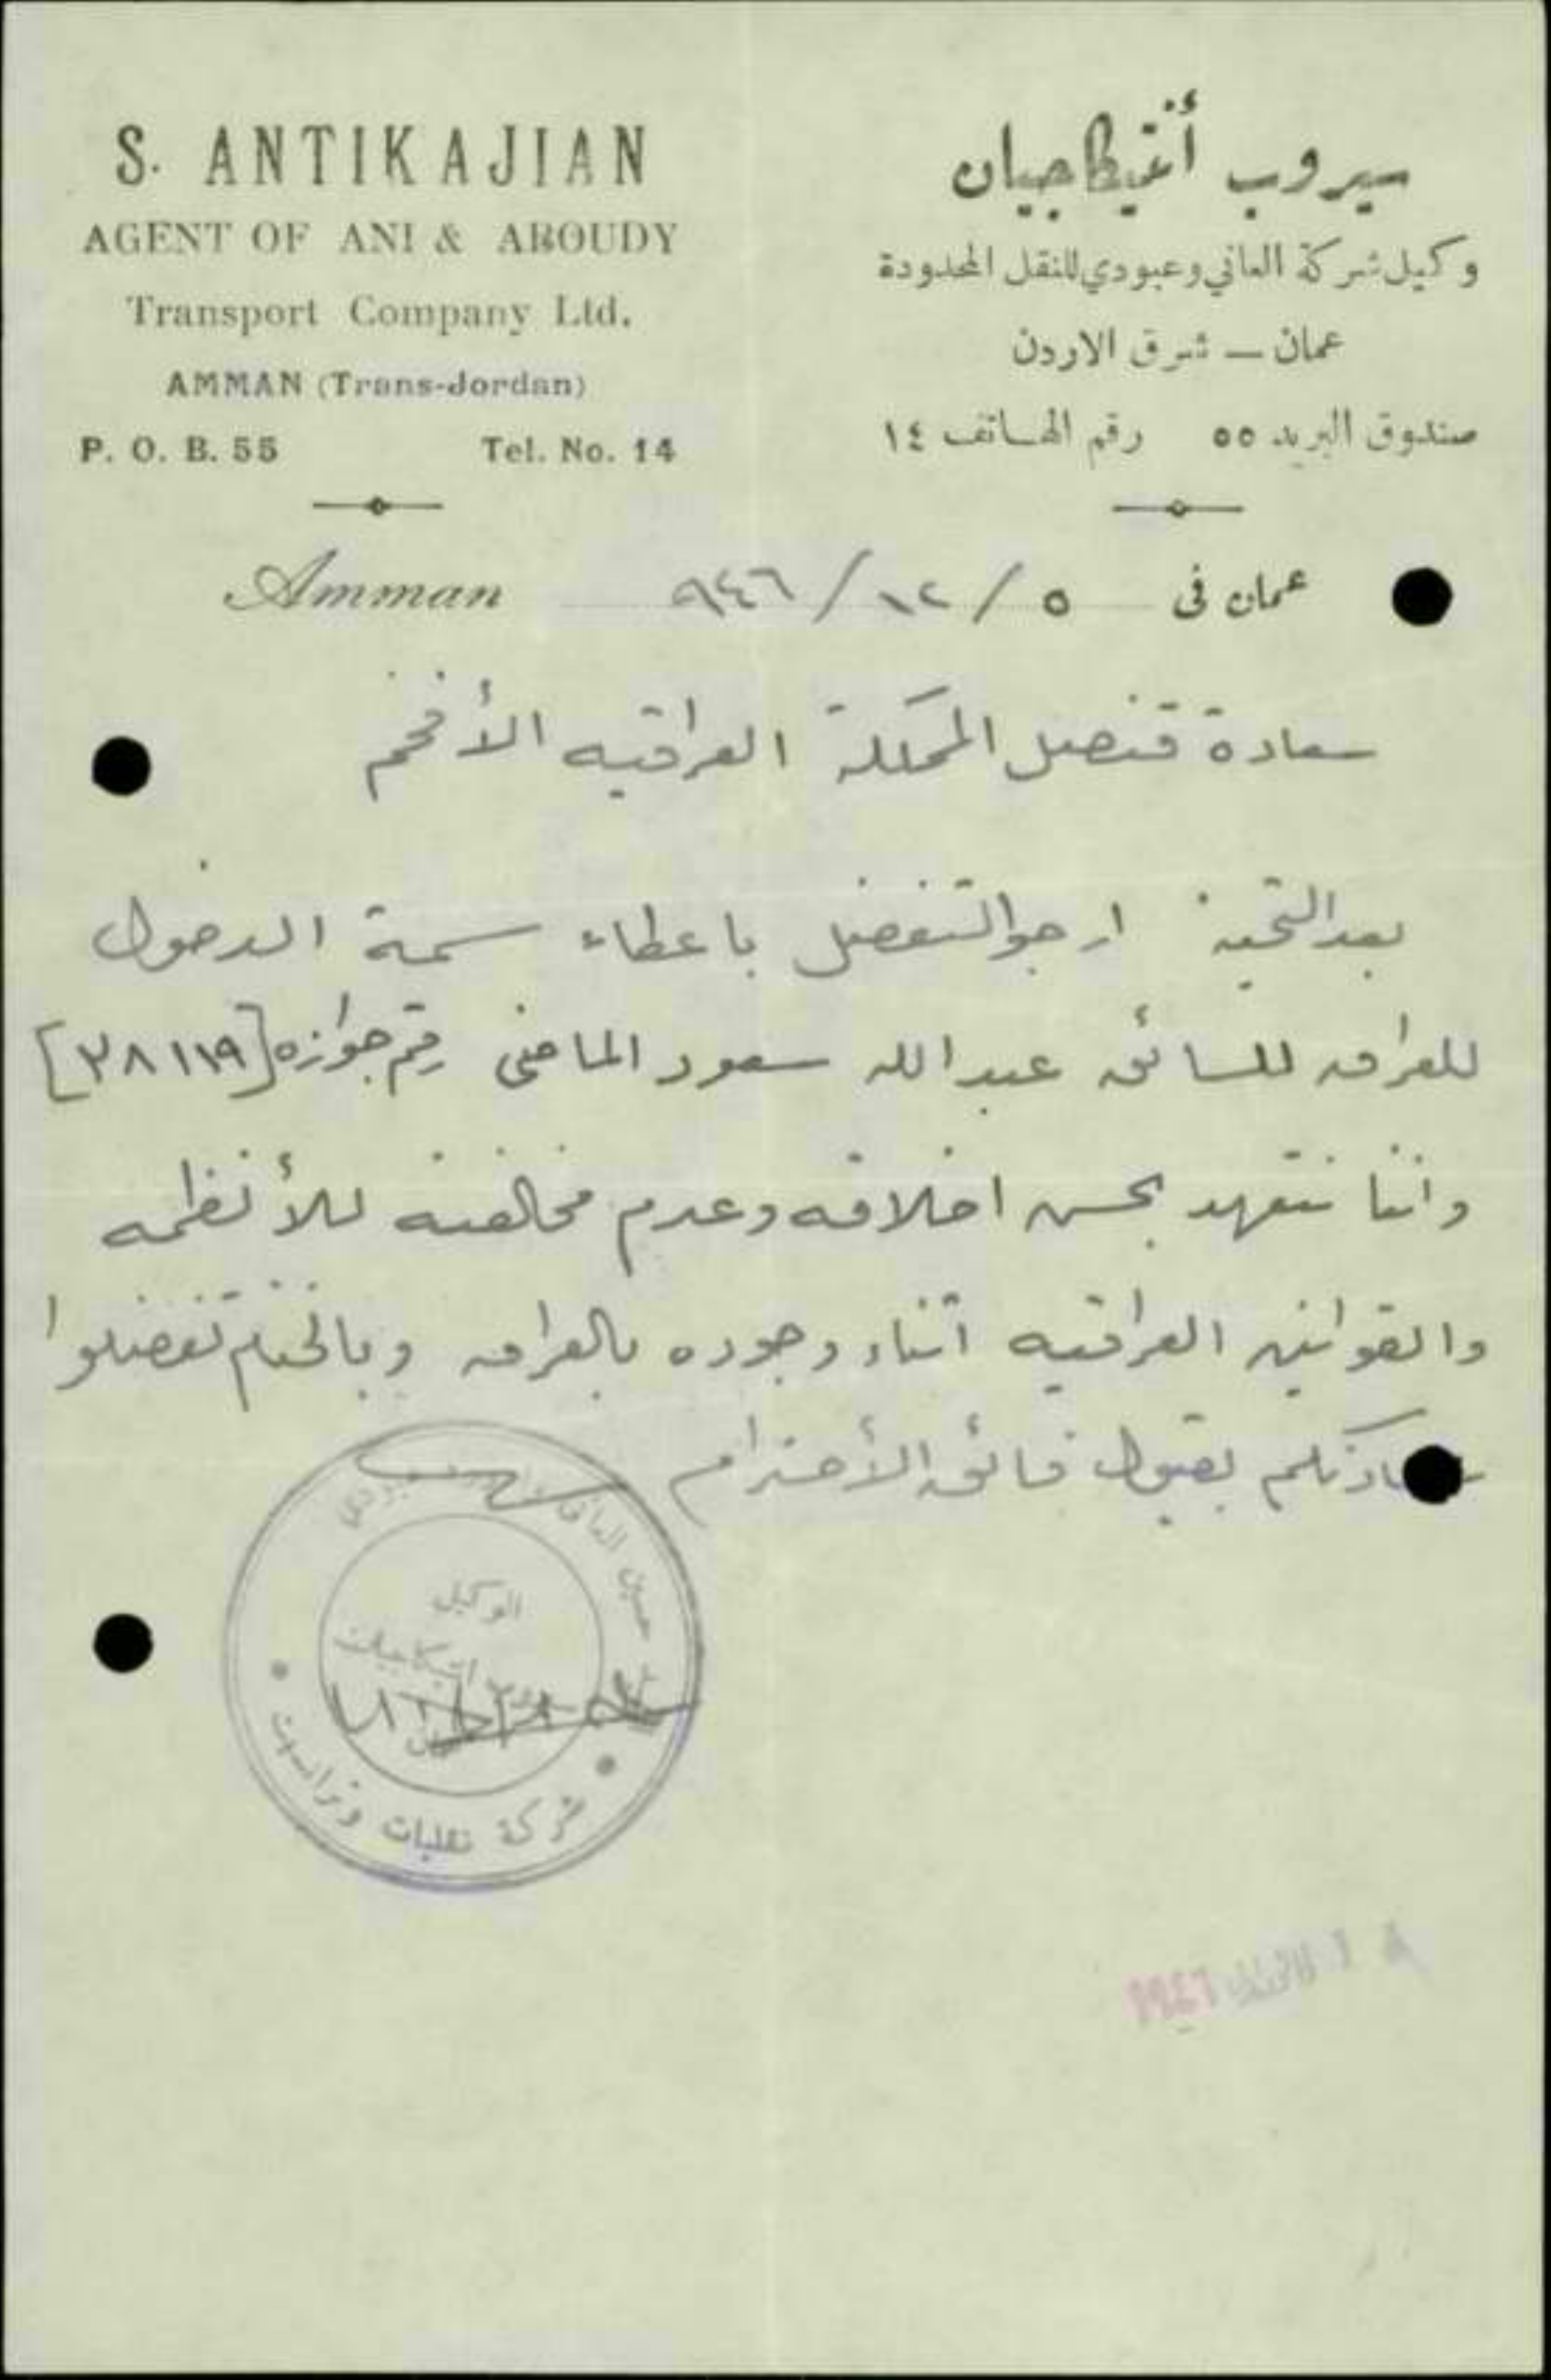 S. ANTIKAJIAN
AGENT OF ANI & ABOUDY
Transport Company Ltd.
AMMAN (Trans-Jordan)
P. O. B. 55 Tel. No. 14
سيروب أنتيكاجيان
وكيل شركة العاني وعبودي للنقل المحدودة
عمان — شرق الاردن
صندوق البريد ٥٥ رقم الهاتف ١٤
Amman
عمان في ٥ / ١٢ / ٩٤٦
سعادة قنصل المملكة العراقيه الأفخم
بعد التحية ارجو التفضل باعطاء سمة الدخول
للعراق للسائق عبدالله سعود الماضي رقم جوازه [٣٨١١٩]
واننا نتعهد بحسن اخلاقه وعدم مخالفته للأنظمه
والقوانين العراقيه اثناء وجوده بالعراق وبالختام تفضلوا
سعادتكم بقبول فائق الأحترام
حسين العاني
الوكيل
انتيكاجيان
شركة نقليات وترانسيت